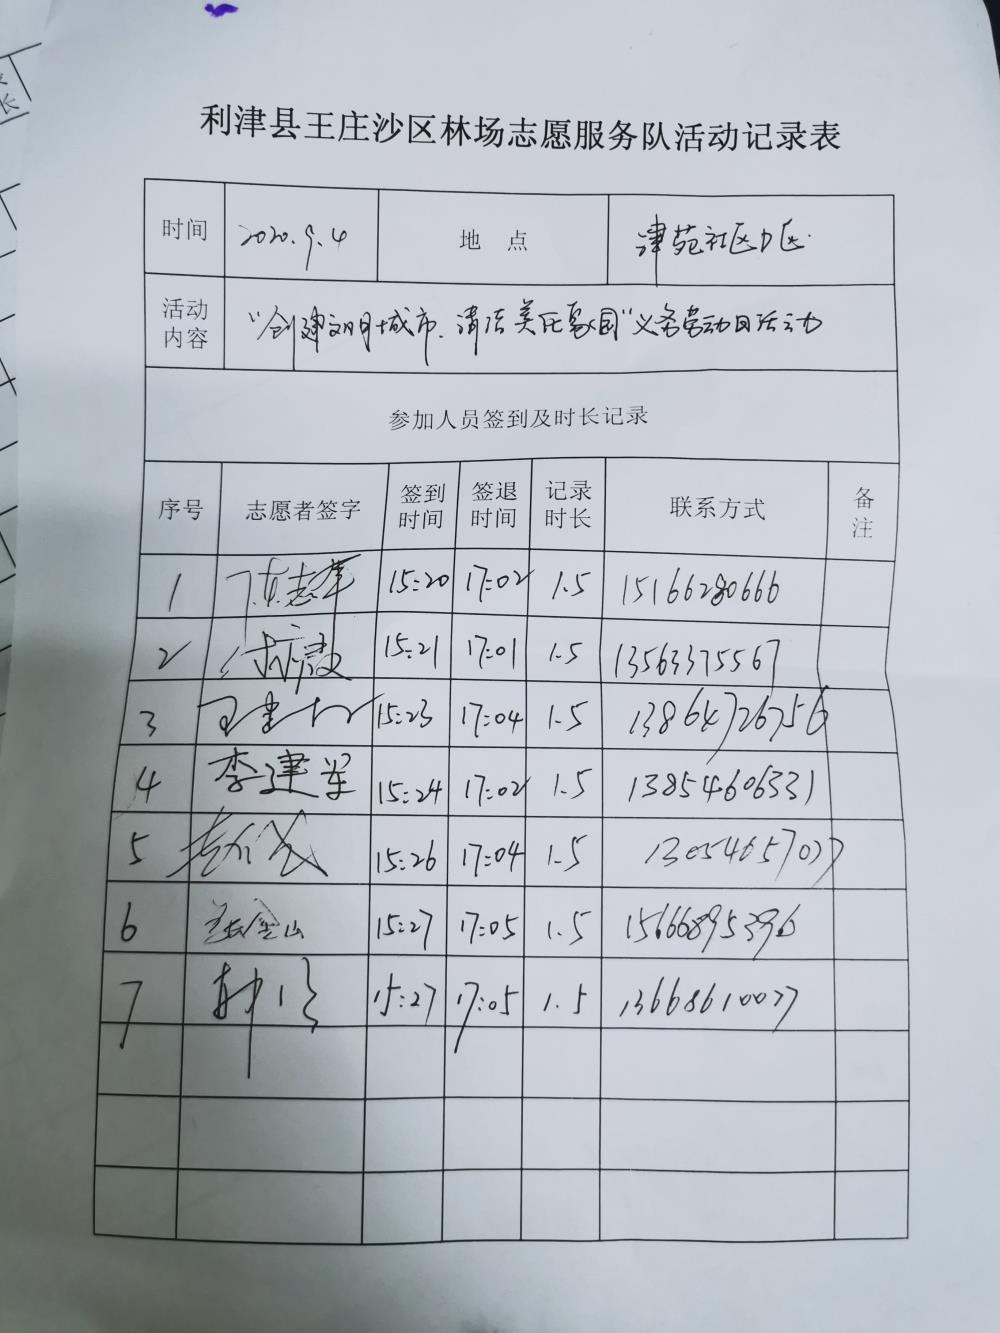 利津县王庄沙区林场志愿服务队活动记录表
时间 2020.9.4 地 点 津苑社区D区
活动内容 "创建文明城市、清洁美化家园"义务劳动日活动
参加人员签到及时长记录
序号 志愿者签字 签到时间 签退时间 记录时长 联系方式 备注
1 陈志军 15:20 17:02 1.5 15166280666
2 15:21 17:01 1.5 13563375567
3 15:23 17:04 1.5 13864726756
4 李建军 15:24 17:02 1.5 13854606331
5 15:26 17:04 1.5 13054657077
6 15:27 17:05 1.5 15666895396
7 15:27 17:05 1.5 13668610077
长